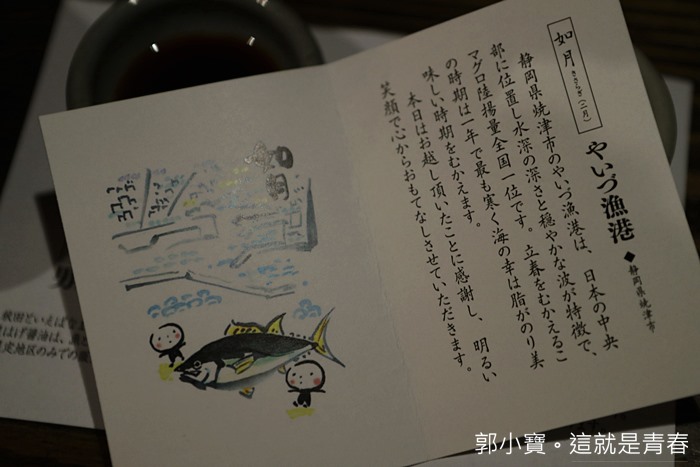 如月きさらぎ(二月)
やいづ漁港◆静岡県焼津市
静岡県焼津市のやいづ漁港は、日本の中央
部に位置し水深の深さと穏やかな波が特徴で、
マグロ陸揚量全国一位です。立春をむかえるこ
の時期は一年で最も寒く海の幸は脂がのり美
味しい時期をむかえます。
本日はお越し頂いたことに感謝し、明るい
笑顔で心からおもてなしさせていただきます。
秋田といえば
郭小寶。這就是青春